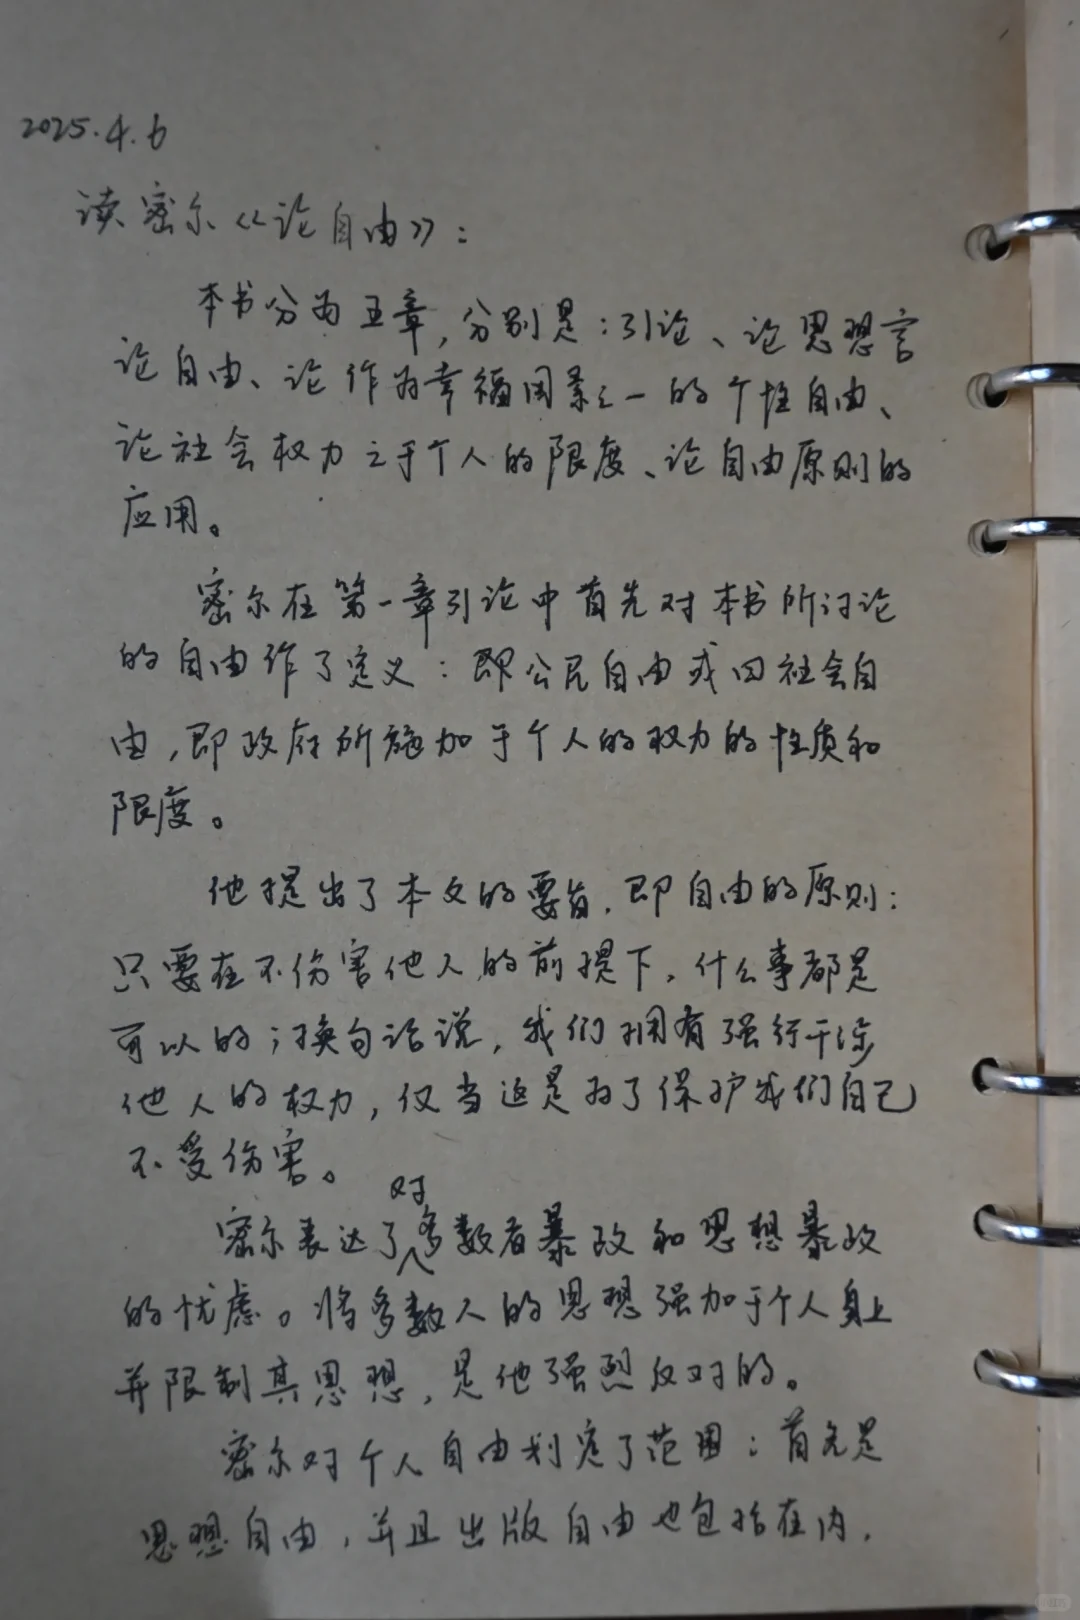 2025.4.6
读密尔《论自由》:
本书分为五章,分别是:引论、论思想言
论自由、论作为幸福因素之一的个性自由、
论社会权力之于个人的限度、论自由原则的
应用。
密尔在第一章引论中首先对本书所讨论
的自由作了定义:即公民自由或曰社会自
由,即政府所施加于个人的权力的性质和
限度。
他提出了本文的要旨,即自由的原则:
只要在不伤害他人的前提下,什么事都是
可以的;换句话说,我们拥有强行干涉
他人的权力,仅当这是为了保护我们自己
不受伤害。
密尔表达了对多数者暴政和思想暴政
的忧虑。将多数人的思想强加于个人身上
并限制其思想,是他强烈反对的。
密尔对个人自由划定了范围:首先是
思想自由,并且出版自由也包括在内,